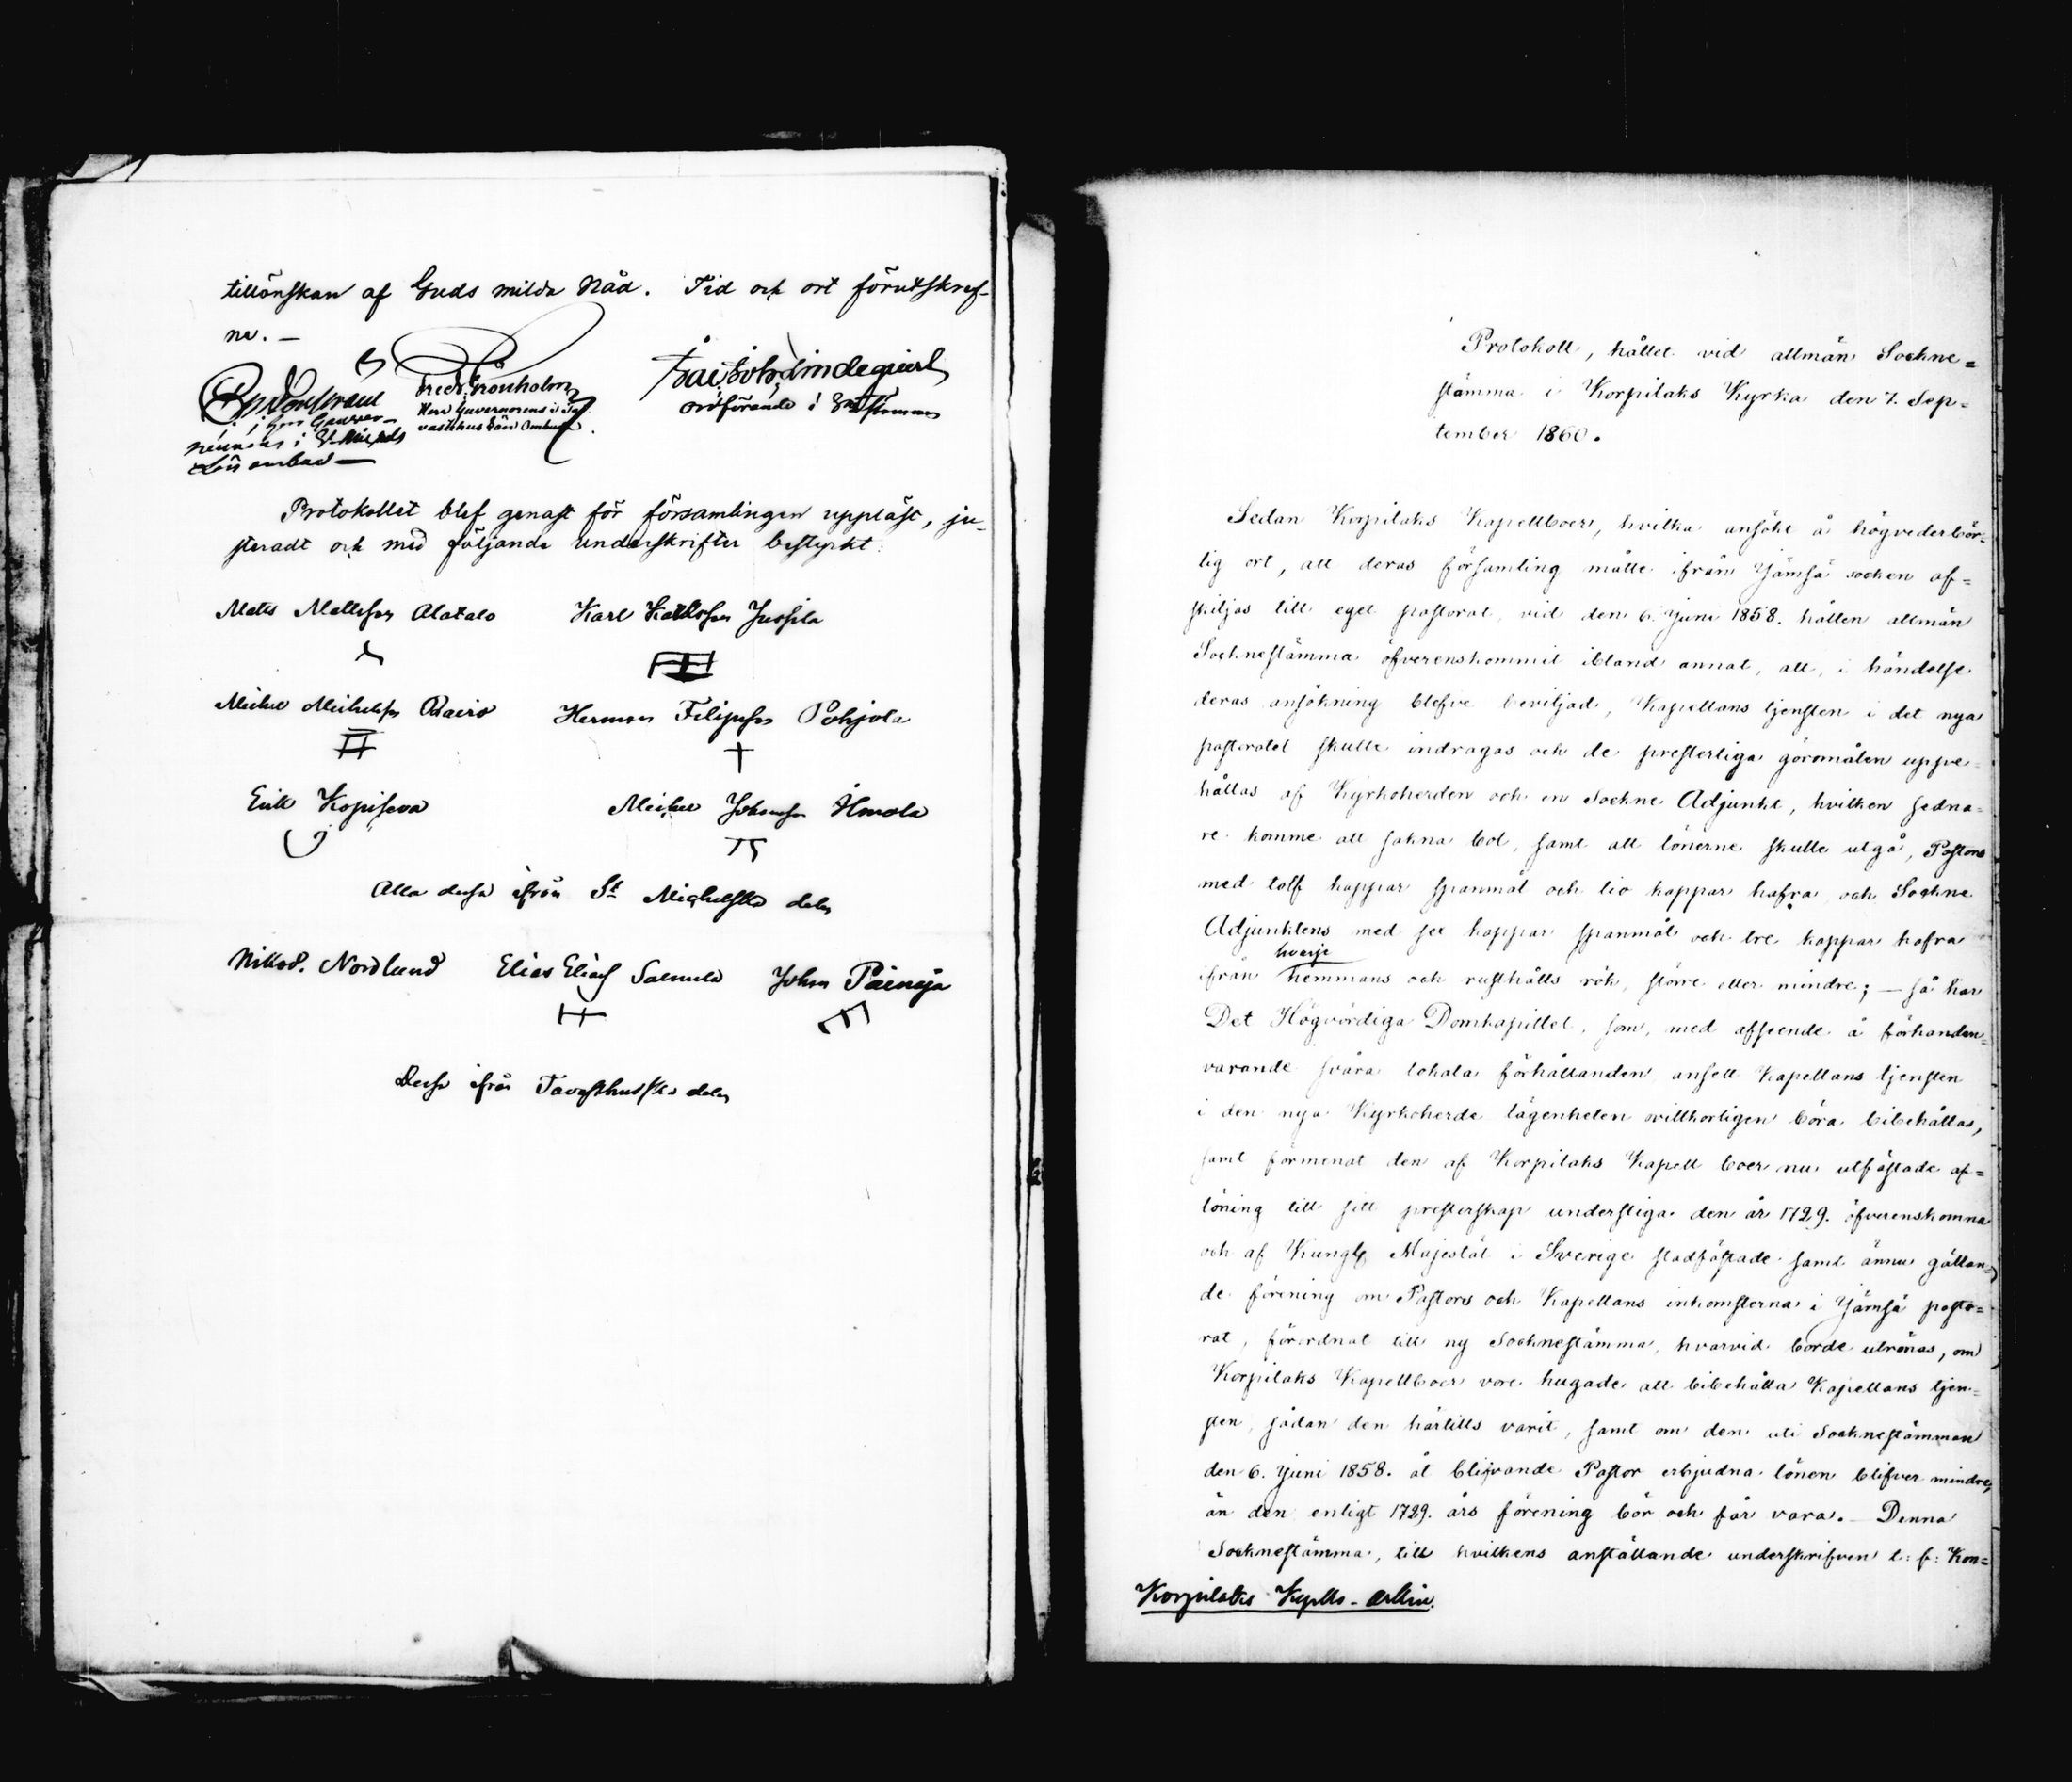 tillönskan af Guds milda Nåd. Tid och ort förutskref-
ne. —
Fredr. Grönholm
Herr Guvernorens i Ta-
vastehus Län Ombud
ordförande i Stämman
Protokollet blef genast för församlingen uppläst, ju-
steradt och med följande underskrifter bestyrkt:
Matts Mattsson Alatalo Karl Karlsson Jussila
Michel Michelsson Herman Filipusson Pohjola
Erik Michel Johansson
Alla dessa ifrån St Michelska delen
Nikod. Nordlund Elias Eliass Salmela Johan Päiniijä
Dessa ifrån Tavasthusska delen
Protokoll, hållet vid allmän Sockne=
stämma i Korpilaks Kyrka den 7. Sep=
tember 1860.
Sedan Korpilaks Kapellboer, hvilka ansökt å högvederbör=
lig ort, att deras församling måtte ifrån Jämsä socken af=
skiljas till eget pastorat, vid den 6. Juni 1858. hållen allmän
Socknestämma öfverenskommit ibland annat, att, i händelse
deras ansökning blefve beviljad, Kapellans tjensten i det nya
pastoratet skulle indragas och de presterliga göromålen uppe=
hållas af Kyrkoherden och en Sockne Adjunkt, hvilken sedna=
re komme att sakna bol, samt att lönerne skulle utgå, Pastors
med tolf kappar spanmål och tio kappar hafra och Sockne
Adjunktens med sex kappar spanmål och tre kappar hafra
ifrån hvarje hemmans och rusthålls rök, större eller mindre; — så har
Det Högvördiga Domkapitlet, som, med afseende å förhanden=
varande svåra lokala förhållanden ansett Kapellans tjensten
i den nya Kyrkoherde lägenheten ovillkorligen böra bibehållas,
samt förmenat den af Korpilaks Kapell boer nu utfästade af=
löning till sitt presterskap understiga den år 1729. öfverenskomna
och af Kungl. Majestät i Sverige stadfästade samt ännu gällan=
de förening om Pastors och Kapellans inkomsterna i Jämsä pasto=
rat, förordnat till ny Socknestämma, hvarvid borde utrönas, om
Korpilaks Kapellboer vore hugade att bibehålla Kapellans tjen=
sten, sådan den härtills varit, samt om den uti Socknestämman
den 6. Juni 1858. åt blifvande Pastor erbjudna lönen blifver mindre,
än den enligt 1729. års förening bör och får vara. — Denna
Socknestämma, till hvilkens anställande underskrifven t: f: Kon=
Korpilaks Kaplls-arkiv.